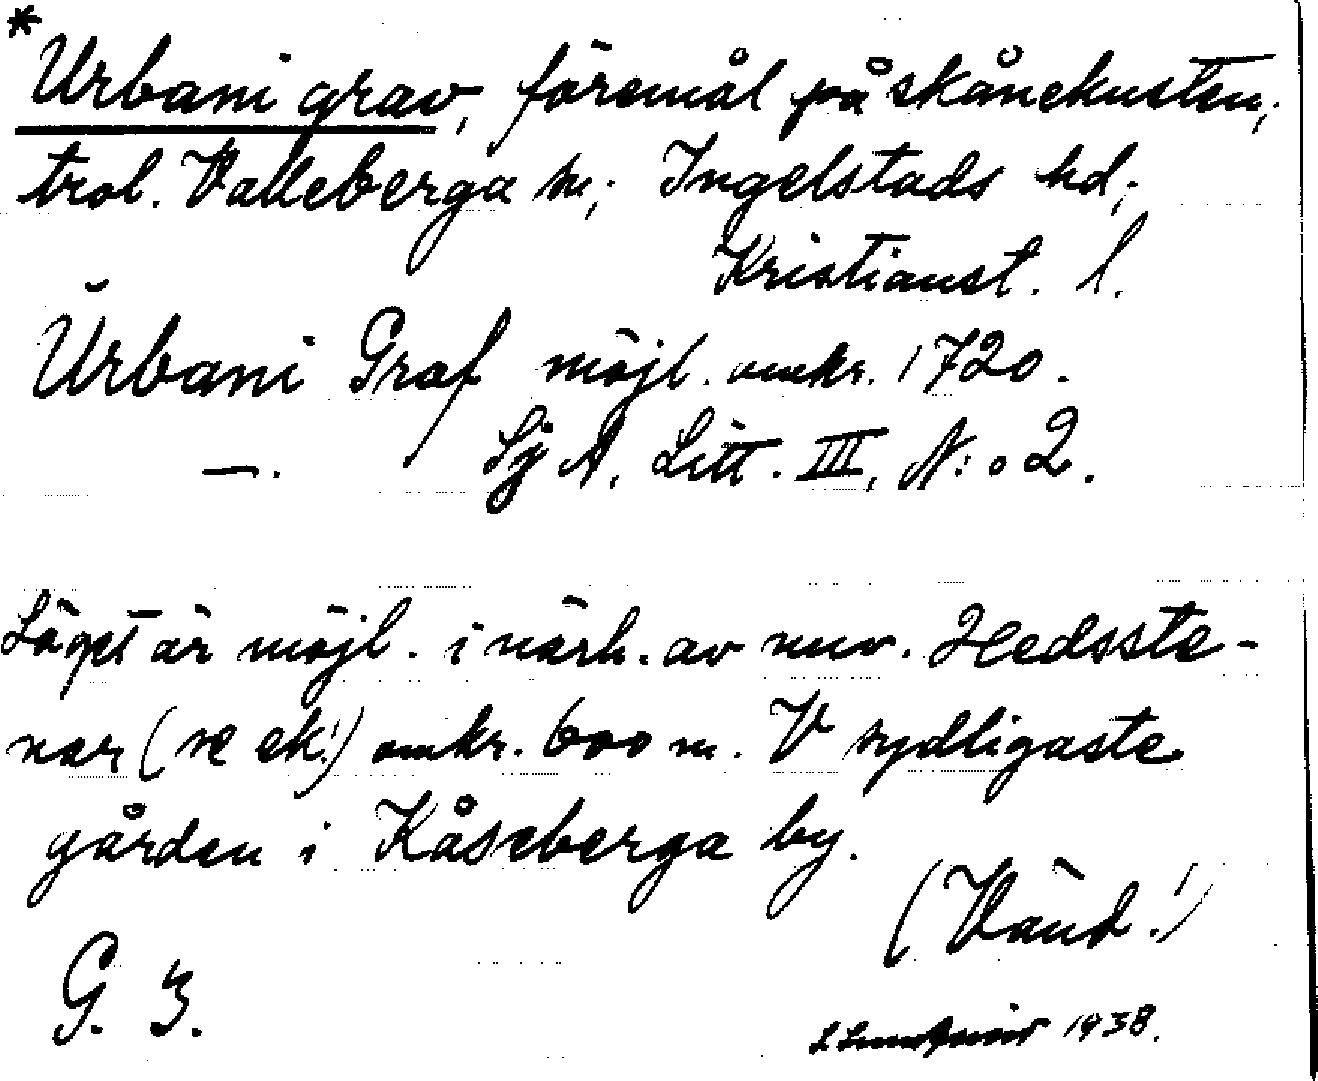 *Urbani grav, föremål på skånekusten,
trol. Valleberga sn, Ingelstads hd,
Kristianst. l.
Ŭrbani Graf möjl. omkr. 1720.
—. Sjö A, Litt. III, N:o 2.
Läget är möjl. i närh. av nuv. Hedsste-
nar (se ek!) omkr. 600 m. V sydligaste
gården i Kåseberga by.
(Vänd!)
G. 3.
1938.